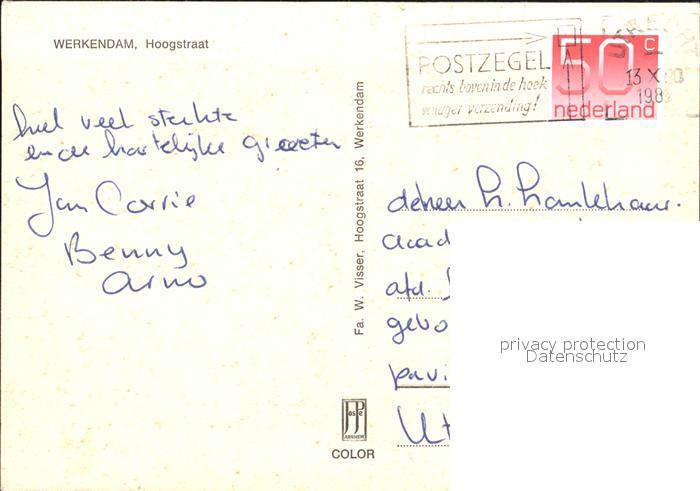 WERKENDAM, Hoogstraat
POSTZEGEL
rechts boven in de hoek
vlugger verzending!
50 C
nederland
13 X
198
heel veel sterkte
en de hartelijke groeten
Jan Corrie
Benny
Arno
Fa. W. Visser, Hoogstraat 16, Werkendam
de heer H.
acad
afd.
gebo
pavi
Ut
privacy protection
Datenschutz
JosPe
ARNHEM
COLOR